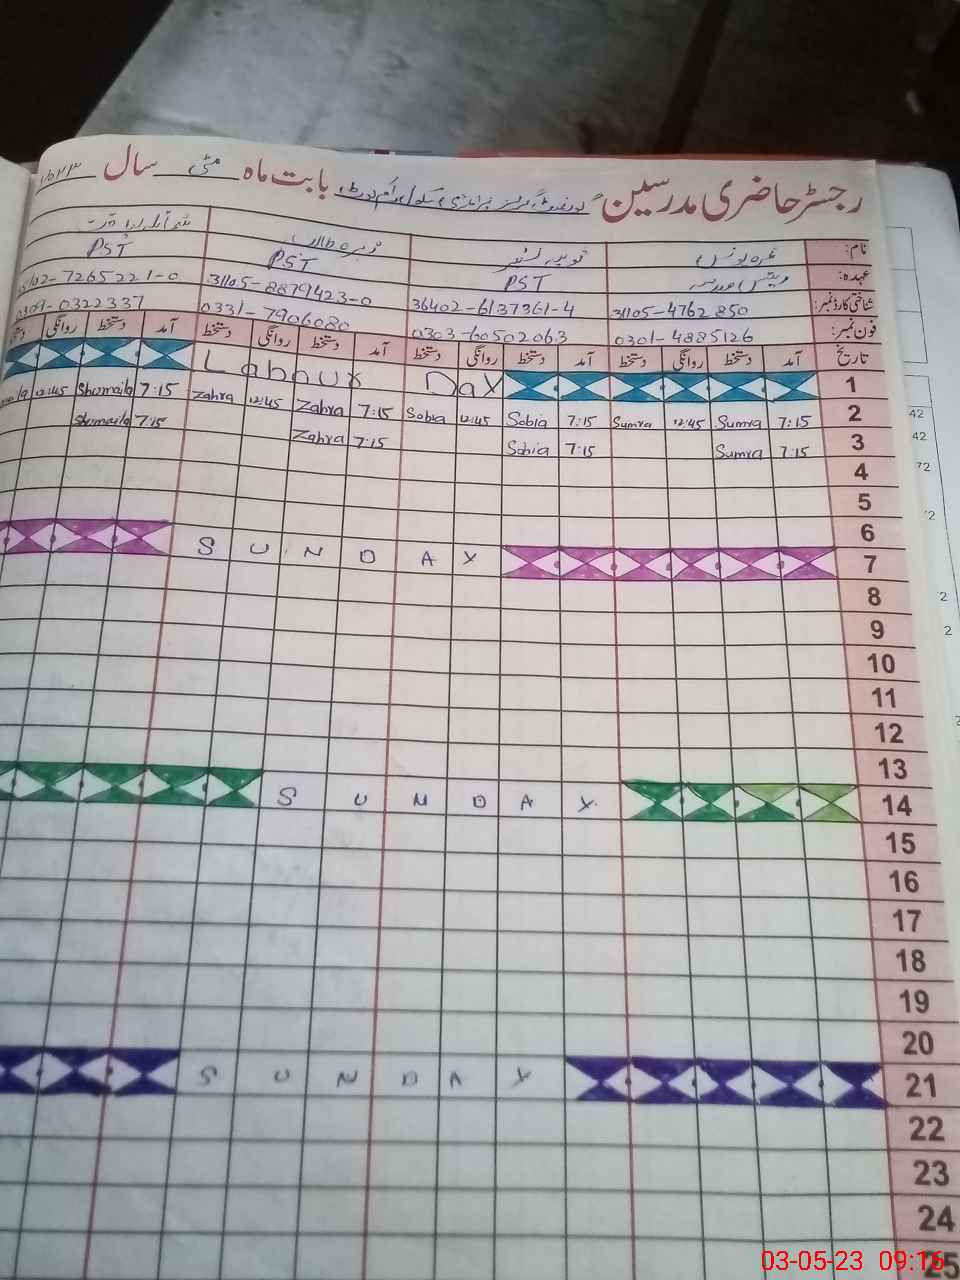 رجسٹر حاضری مدرسین بابت ماہ مئی سال ۲۰۲۳
نام:
عہدہ: PST PST PST
شناختی کارڈ نمبر: 31105-4762850 36402-6137361-4 31105-8879423-0 02-7265221-0
فون نمبر: 0301-4885126 0303-60502063 0331-7906080 0309-0322337
تاریخ آمد دستخط روانگی دستخط آمد دستخط روانگی دستخط آمد دستخط روانگی دستخط آمد دستخط روانگی دستخط
Labour Day 1
12:45 Shumaila 7:15 Zahra 12:45 Zahra 7:15 Sobia 12:45 Sobia 7:15 Sumra 12:45 Sumra 7:15 2
Shumaila 7:15 Zahra 7:15 Sobia 7:15 Sumra 7:15 3
4
5
6
SUNDAY 7
8
9
10
11
12
13
SUNDAY 14
15
16
17
18
19
20
SUNDAY 21
22
23
24
25
42
42
72
2
2
2
03-05-23 09:16